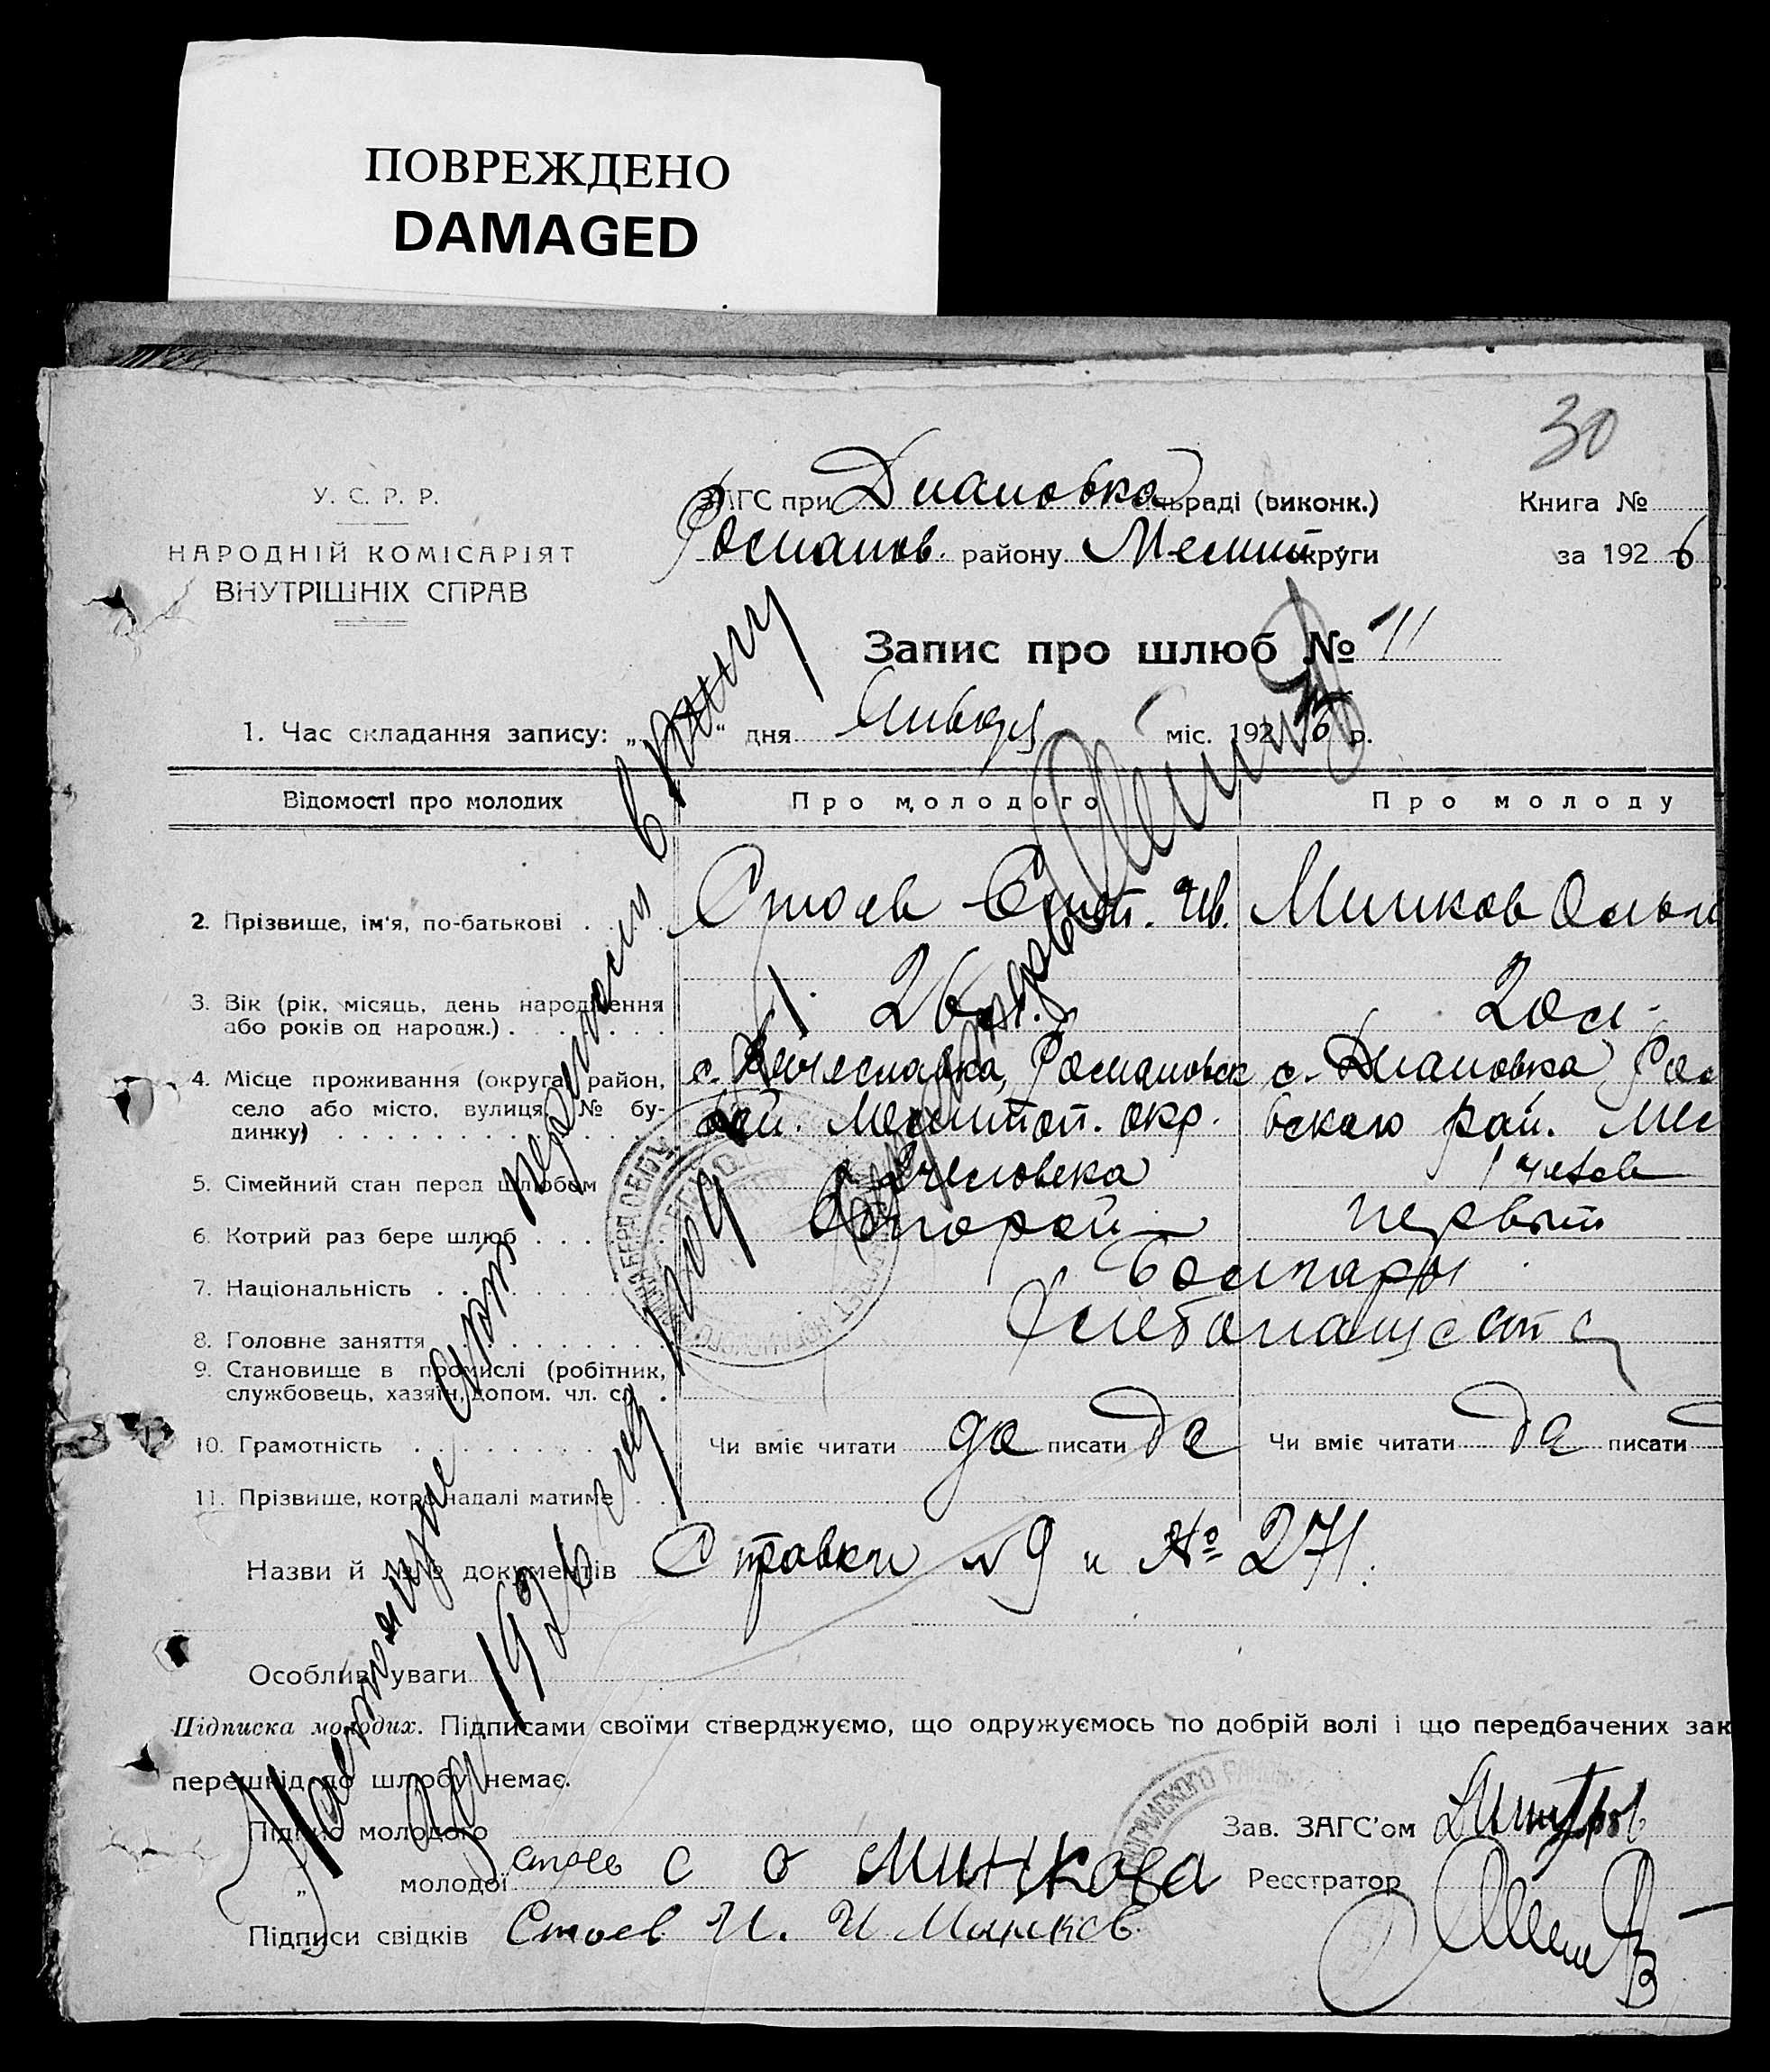 ПОВРЕЖДЕНО
DAMAGED
30
У. С. Р. Р.
НАРОДНІЙ КОМІСАРІЯТ
ВНУТРІШНІХ СПРАВ
ЗАГС при Диановка сільраді (виконк.)
Романов. району Мелит округи
Книга №
за 1926
Запис про шлюб № 11
1. Час складання запису: „ “ дня Января міс. 1926 р.
Відомості про молодих
Про молодого
Про молоду
2. Прізвище, ім'я, по-батькові Стоев Ив. Минков Ольга
3. Вік (рік, місяць, день народження
або років од народж.) 26 л. 20 л.
4. Місце проживання (округа, район,
село або місто, вулиця, № бу-
динку)
с. Романовск с. Диановка Ром
рай. Мелитоп. окр. вского рай. Мел
5. Сімейний стан перед шлюбом 2 человека 1 челов
6. Котрий раз бере шлюб Второй первый
7. Національність Болгары
8. Головне заняття Хлебопашество
9. Становище в промислі (робітник,
службовець, хазяїн, допом. чл. с.)
10. Грамотність Чи вміє читати да писати да Чи вміє читати да писати
11. Прізвище, котре надалі матиме
Назви й №№ документів Справки № 9 и № 271.
Особливі уваги
Підписка молодих. Підписами своїми стверджуємо, що одружуємось по добрій волі і що передбачених зак
перешкід до шлюбу немає.
Підпис молодого
„ молодої стоев с о Минкова
Підписи свідків Стоев И. И Минков.
Зав. ЗАГС'ом Димитров
Реєстратор
Настоящие акт перенесен в книгу
за 1926 год под